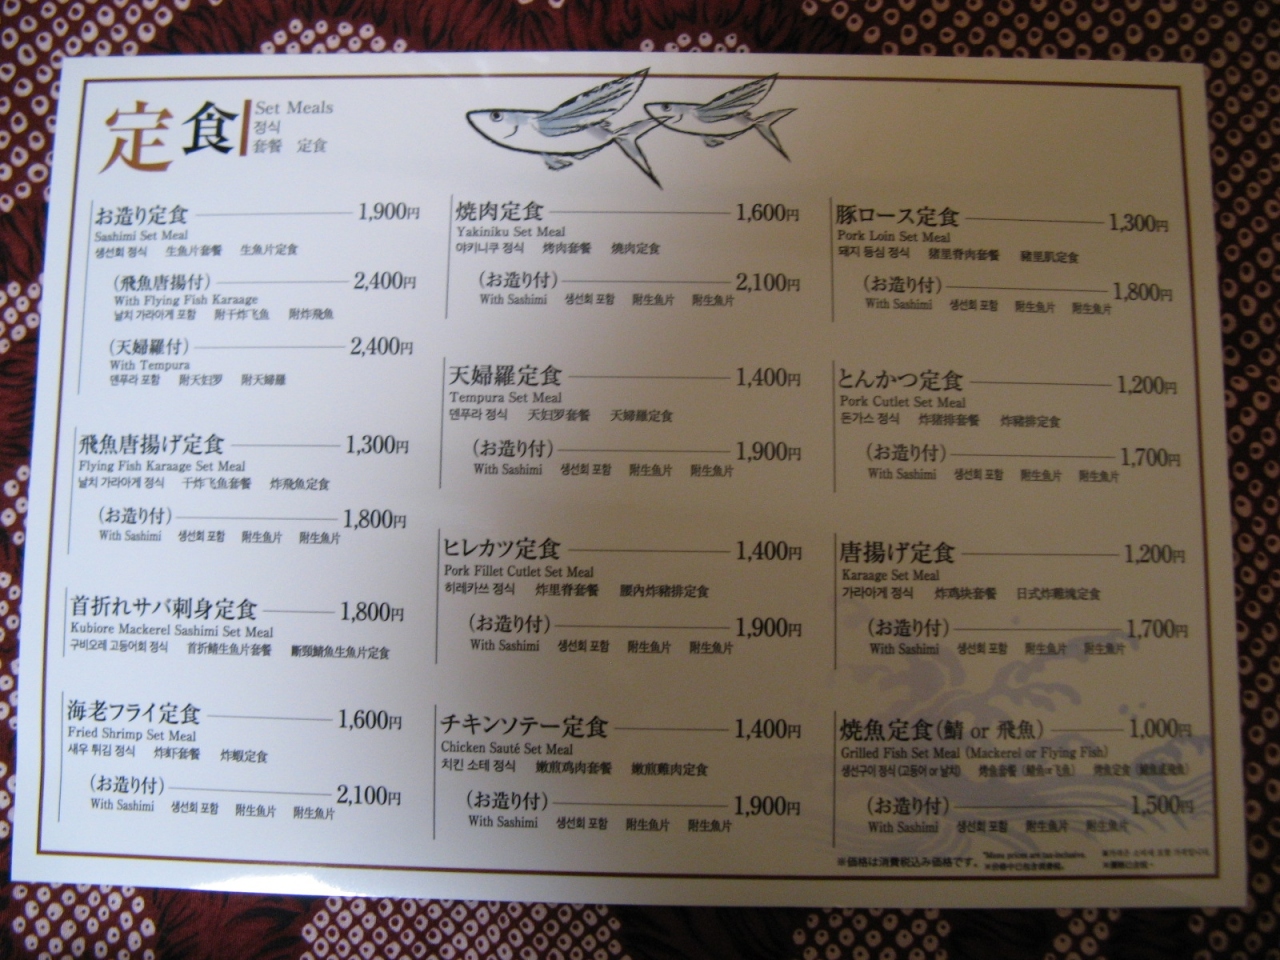 定食
Set Meals
정식
套餐 定食
お造り定食 1,900円
Sashimi Set Meal
생선회 정식 生鱼片套餐 生魚片定食
(飛魚唐揚付) 2,400円
With Flying Fish Karaage
날치 가라아게 포함 附干炸飞鱼 附炸飛魚
(天婦羅付) 2,400円
With Tempura
덴푸라 포함 附天妇罗 附天婦羅
飛魚唐揚げ定食 1,300円
Flying Fish Karaage Set Meal
날치 가라아게 정식 干炸飞鱼套餐 炸飛魚定食
(お造り付) 1,800円
With Sashimi 생선회 포함 附生鱼片 附生魚片
首折れサバ刺身定食 1,800円
Kubiore Mackerel Sashimi Set Meal
구비오레 고등어회 정식 首折鲭生鱼片套餐 斷頸鯖魚生魚片定食
海老フライ定食 1,600円
Fried Shrimp Set Meal
새우 튀김 정식 炸虾套餐 炸蝦定食
(お造り付) 2,100円
With Sashimi 생선회 포함 附生鱼片 附生魚片
焼肉定食 1,600円
Yakiniku Set Meal
야키니쿠 정식 烤肉套餐 燒肉定食
(お造り付) 2,100円
With Sashimi 생선회 포함 附生鱼片 附生魚片
天婦羅定食 1,400円
Tempura Set Meal
덴푸라 정식 天妇罗套餐 天婦羅定食
(お造り付) 1,900円
With Sashimi 생선회 포함 附生鱼片 附生魚片
ヒレカツ定食 1,400円
Pork Fillet Cutlet Set Meal
히레카쓰 정식 炸里脊套餐 腰內炸豬排定食
(お造り付) 1,900円
With Sashimi 생선회 포함 附生鱼片 附生魚片
チキンソテー定食 1,400円
Chicken Sauté Set Meal
치킨 소테 정식 嫩煎鸡肉套餐 嫩煎雞肉定食
(お造り付) 1,900円
With Sashimi 생선회 포함 附生鱼片 附生魚片
豚ロース定食 1,300円
Pork Loin Set Meal
돼지 등심 정식 猪里脊肉套餐 豬里肌定食
(お造り付) 1,800円
With Sashimi 생선회 포함 附生鱼片 附生魚片
とんかつ定食 1,200円
Pork Cutlet Set Meal
돈가스 정식 炸猪排套餐 炸豬排定食
(お造り付) 1,700円
With Sashimi 생선회 포함 附生鱼片 附生魚片
唐揚げ定食 1,200円
Karaage Set Meal
가라아게 정식 炸鸡块套餐 日式炸雞塊定食
(お造り付) 1,700円
With Sashimi 생선회 포함 附生鱼片 附生魚片
焼魚定食(鯖 or 飛魚) 1,000円
Grilled Fish Set Meal (Mackerel or Flying Fish)
생선구이 정식 (고등어 or 날치) 烤鱼套餐 (鲭鱼or飞鱼) 烤魚定食 (鯖魚或飛魚)
(お造り付) 1,500円
With Sashimi 생선회 포함 附生鱼片 附生魚片
※価格は消費税込み価格です。
*Menu prices are tax-inclusive.